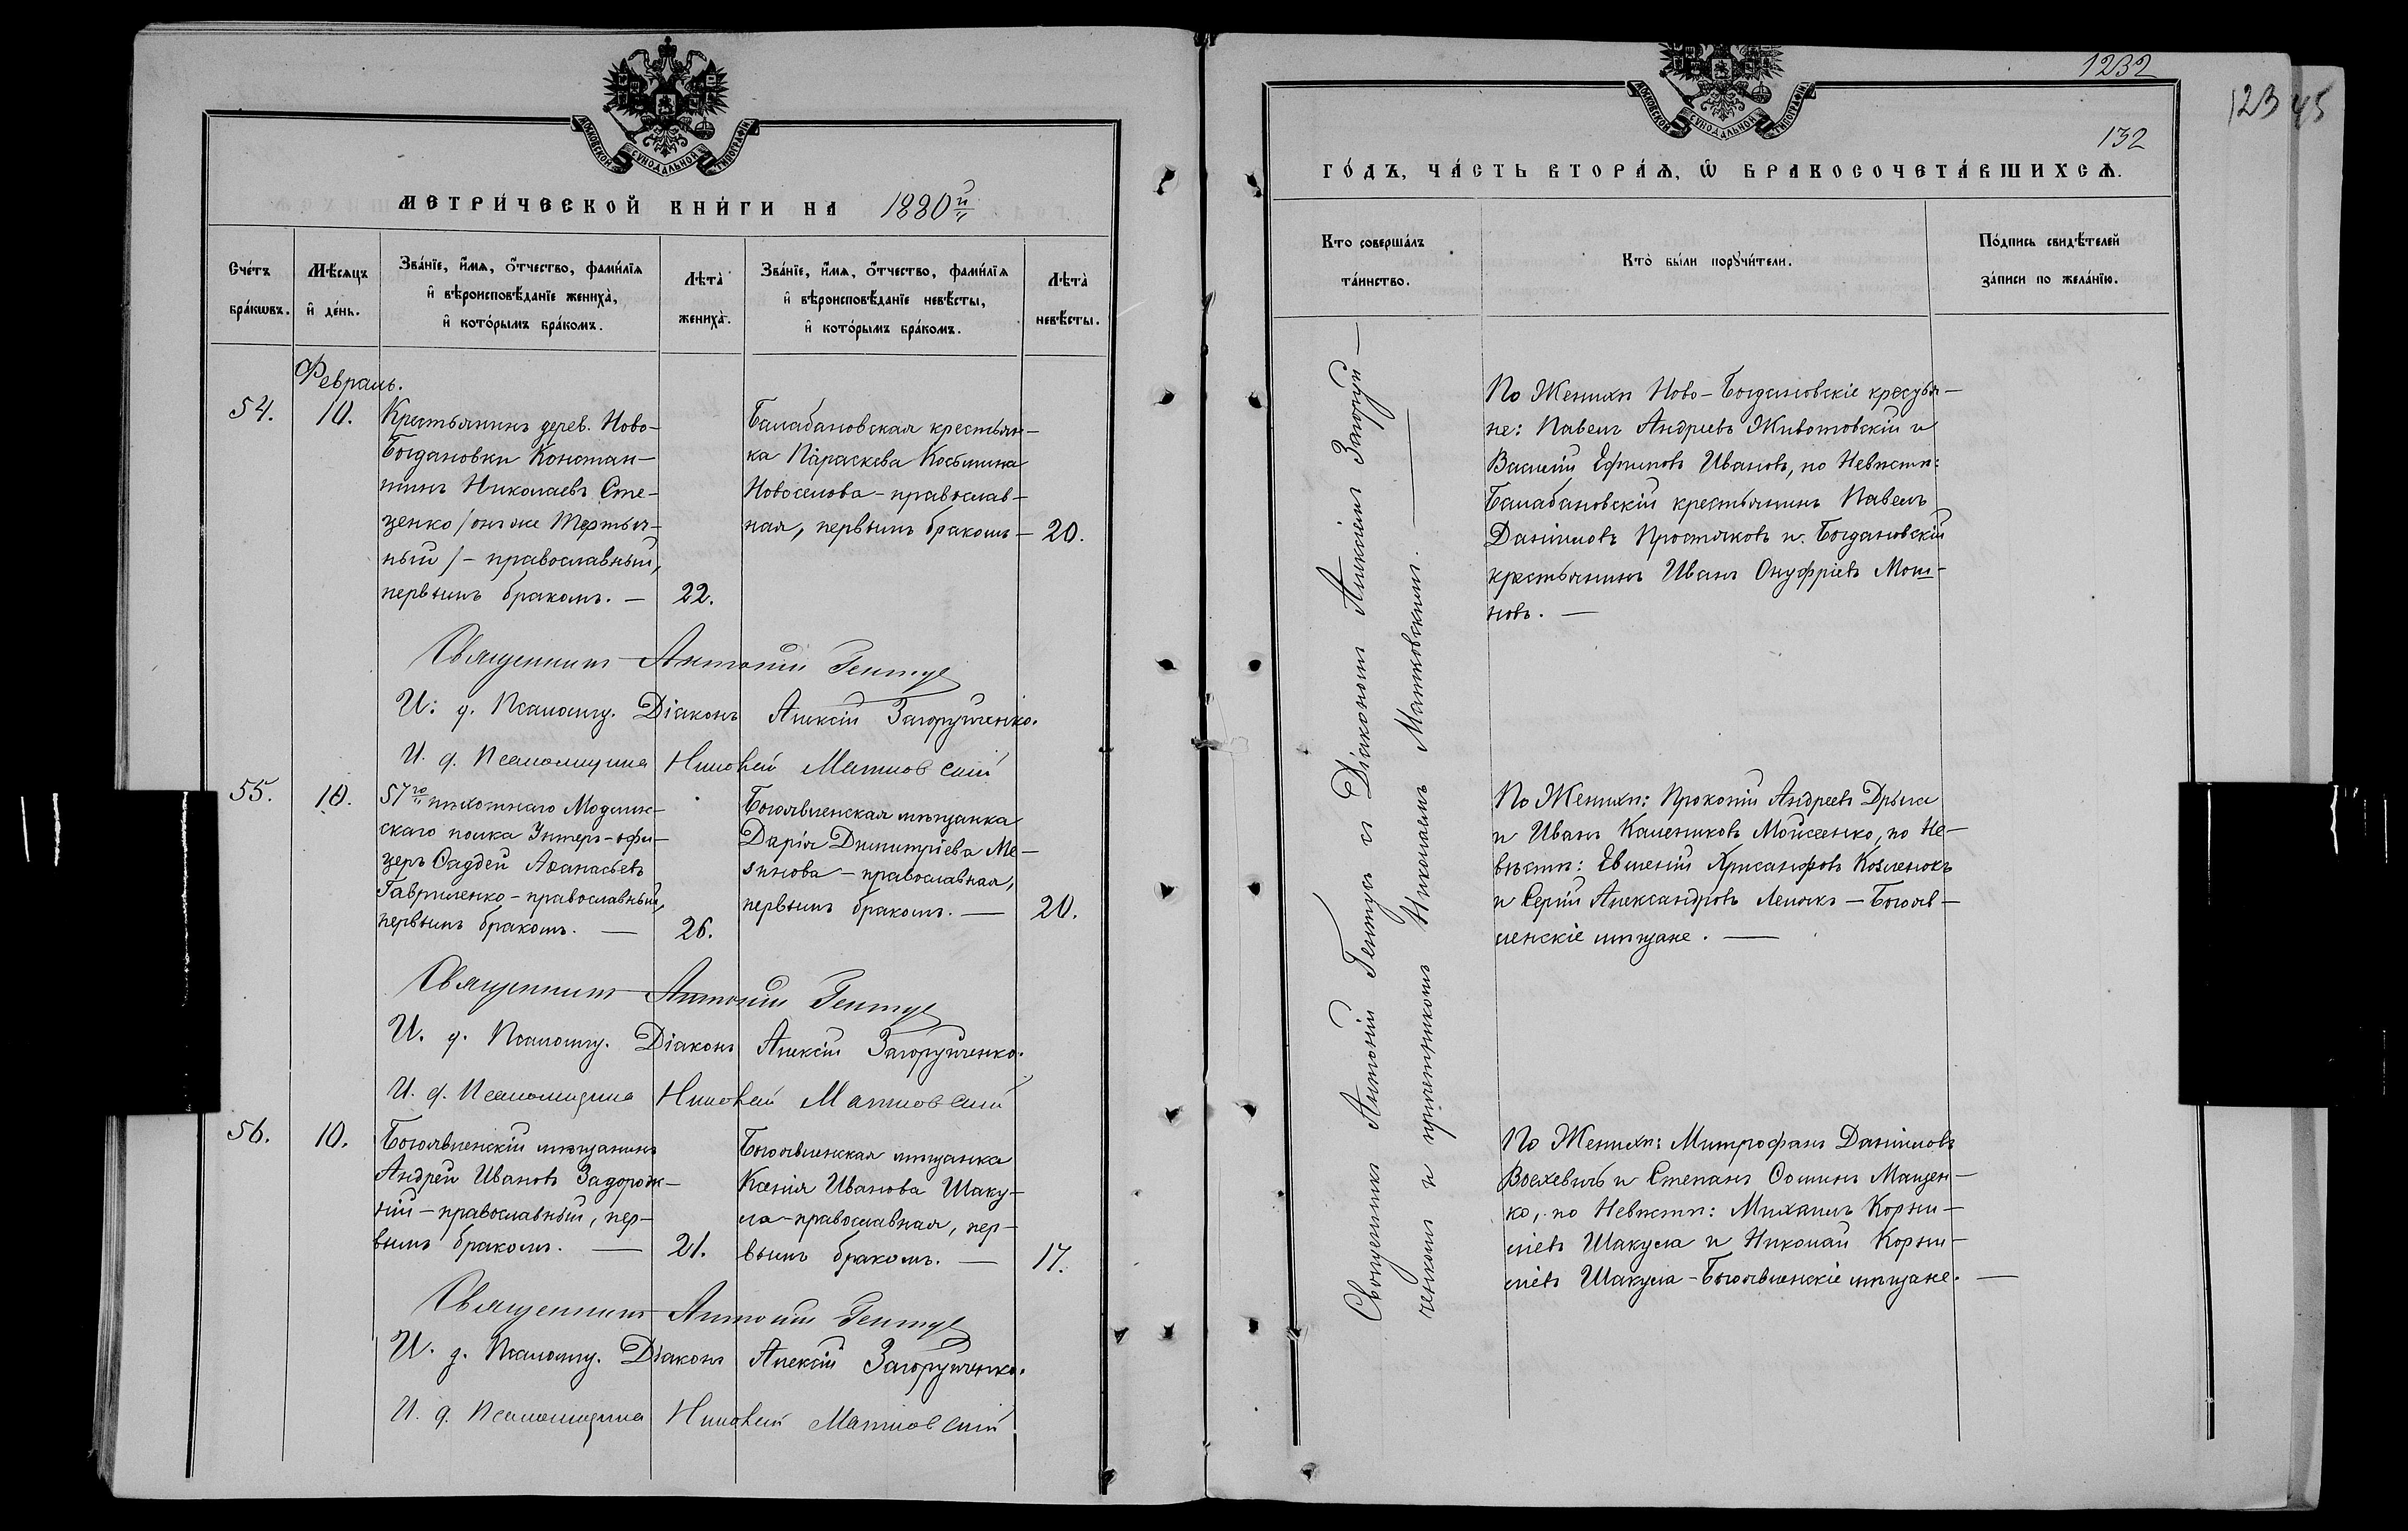 МОСКОВСКОЙ СУНОДАЛЬНОЙ ТИПОГРАФІИ
МЕТРИ́ЧЕСКОЙ КНИ́ГИ НА 1880й
Сче́тъ бра́кωвъ.
Мѣ́сяцъ и҆ де́нь.
Зва́нїе, и҆́мѧ, ѻ҆́тчество, фами́лїѧ
и҆ вѣроисповѣ́данїе жениха̀,
и҆ кото́рымъ бра́комъ.
Лѣта̀ жениха̀.
Зва́нїе, и҆́мѧ, ѻ҆́тчество, фами́лїѧ
и҆ вѣроисповѣ́данїе невѣ́сты,
и҆ кото́рымъ бра́комъ.
Лѣта̀ невѣ́сты.
Февраль.
54.
10.
Крестьянинъ дерев. Ново-
Богдановки Констан-
тинъ Николаевъ Сте-
ценко /онъ же Тертыч-
ный/ - православный,
первымъ бракомъ. —
22.
Балабановская крестьян-
ка Параскева Косьмина
Новоселова - православ-
ная, первымъ бракомъ —
20.
Священникъ Антоній Гентуъ
И: д. Псаломщ. Діаконъ Алексій Загоруйченко.
И. д. Псаломщика Николай Матковскій
55.
10.
57го пѣхотнаго Модлин-
скаго полка Унтеръ-офи-
церъ Фаддей Аѳанасьевъ
Гавриленко - православный,
первымъ бракомъ. —
26.
Богоявленская мѣщанка
Дарія Димитріева Ме-
зинова - православная,
первымъ бракомъ. —
20.
Священникъ Антоній Гентуъ
И. д. Псаломщ. Діаконъ Алексій Загоруйченко.
И. д. Псаломщика Николай Матковскій
56.
10.
Богоявленскій мѣщанинъ
Андрей Ивановъ Задорож-
ній - православный, пер-
вымъ бракомъ. —
21.
Богоявленская мѣщанка
Ксенія Иванова Шаку-
ла - православная, пер-
вымъ бракомъ. —
17.
Священникъ Антоній Гентуъ
И. д. Псаломщ. Діаконъ Алексій Загоруйченко.
И. д. Псаломщика Николай Матковскій
1232
123 45
132
МОСКОВСКОЙ СУНОДАЛЬНОЙ ТИПОГРАФІИ
ГО́ДЪ, ЧА́СТЬ ВТОРА́Ѧ, Ѽ БРАКОСОЧЕТА́ВШИХСѦ.
Кто̀ соверша́лъ
та́инство.
Кто̀ бы́ли порꙋчи́тели.
По́дпись свидѣ́телей
за́писи по жела́нїю.
Священникъ Антоній Гентуъ съ Діакономъ Алексіемъ Загоруй-
ченкомъ и причетникомъ Николаемъ Матковскимъ. —
По Женихѣ Ново-Богдановскіе крестья-
не: Павелъ Андреевъ Животовскій и
Василій Ефимовъ Ивановъ, по Невѣстѣ:
Балабановскій крестьянинъ Павелъ
Даніиловъ Простяковъ и Богдановскій
крестьянинъ Иванъ Онуфріевъ Мош-
новъ. —
По Женихѣ: Прокопій Андреевъ Дрыга
и Иванъ Калениковъ Мойсеенко, по Не-
вѣстѣ: Евменій Хрисанфовъ Козленокъ
и Сергій Александровъ Лелякъ — Богояв-
ленскіе мѣщане. —
По Женихѣ: Митрофанъ Даніиловъ
и Степанъ Ѳоминъ Мацен-
ко, по Невѣстѣ: Михаилъ Корни-
ліевъ Шакула и Николай Корни-
ліевъ Шакула - Богоявленскіе мѣщане. —